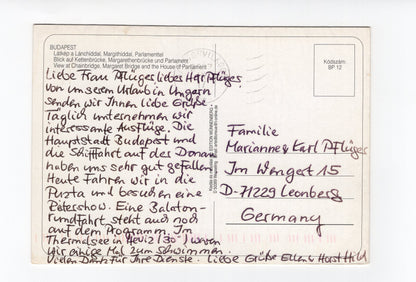 BUDAPEST
Látkép a Lánchiddal, Margithiddal, Parlamenttel
Blick auf Kettenbrücke, Margarethenbrücke und Parlament
View at Chainbridge, Margaret Bridge and the House of Parliament
Liebe Frau Pflüger, liebes Herr Pflüger,
Von unserem Urlaub in Ungarn
senden wir Ihnen liebe Grüße
Täglich unternehmen wir
interessante Ausflüge. Die
Hauptstadt Budapest und
die Schifffahrt auf der Donau
haben uns sehr gut gefallen
Heute fahren wir in die
Puzta und besuchen eine
Pfetershow. Eine Balaton-
rundfahrt steht auch noch
auf dem Programm. Im
Thermalsee in Heviz (30°) waren
wir einige Mal zum Schwimmen.
Vielen Dank für Ihre Dienste. Liebe Grüße Ellen & Horst Hild
Kódszám:
BP 12
Familie
Marianne & Karl Pflüger
Im Wengert 15
D-71229 Leonberg
Germany